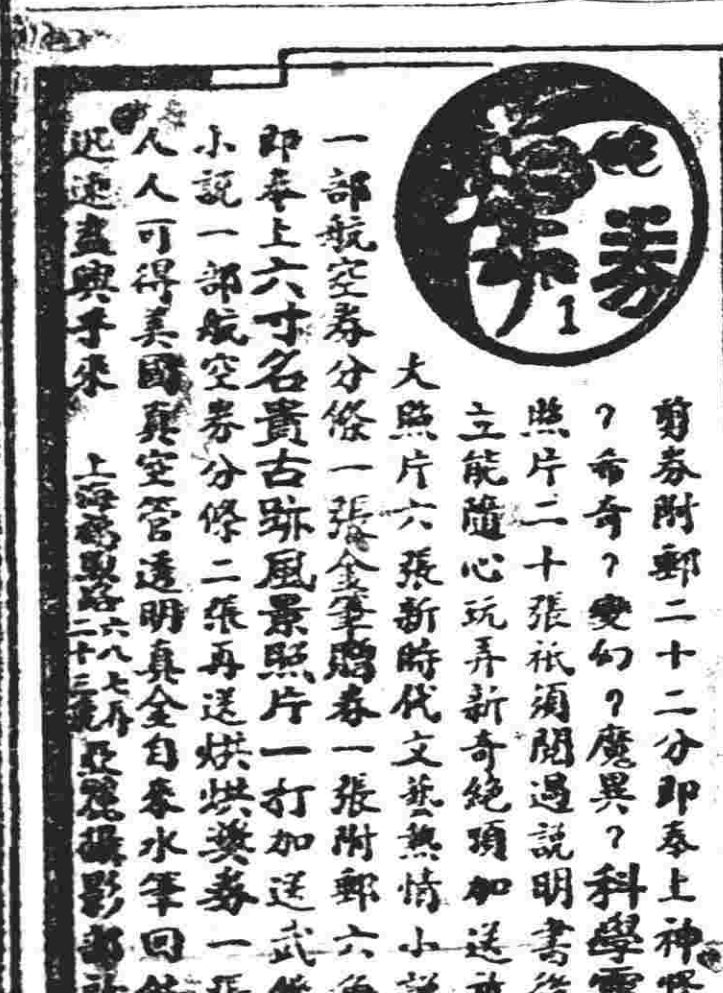 券
1
剪券附郵二十二分即奉上神怪
?希奇?變幻?魔異?科學靈
照片二十張祇須閱過說明書後
立能隨心玩弄新奇絶頂加送放
大照片六張新時代文藝熱情小說
一部航空券分條一張金筆贈券一張附郵六角
即奉上六寸名貴古跡風景照片一打加送武俠
小說一部航空券分條二張再送烘烘獎券一張
人人可得美國真空管透明真金自來水筆回件
迅速盡興乎來
上海 路六八七弄二十三號亞麗攝影部啟